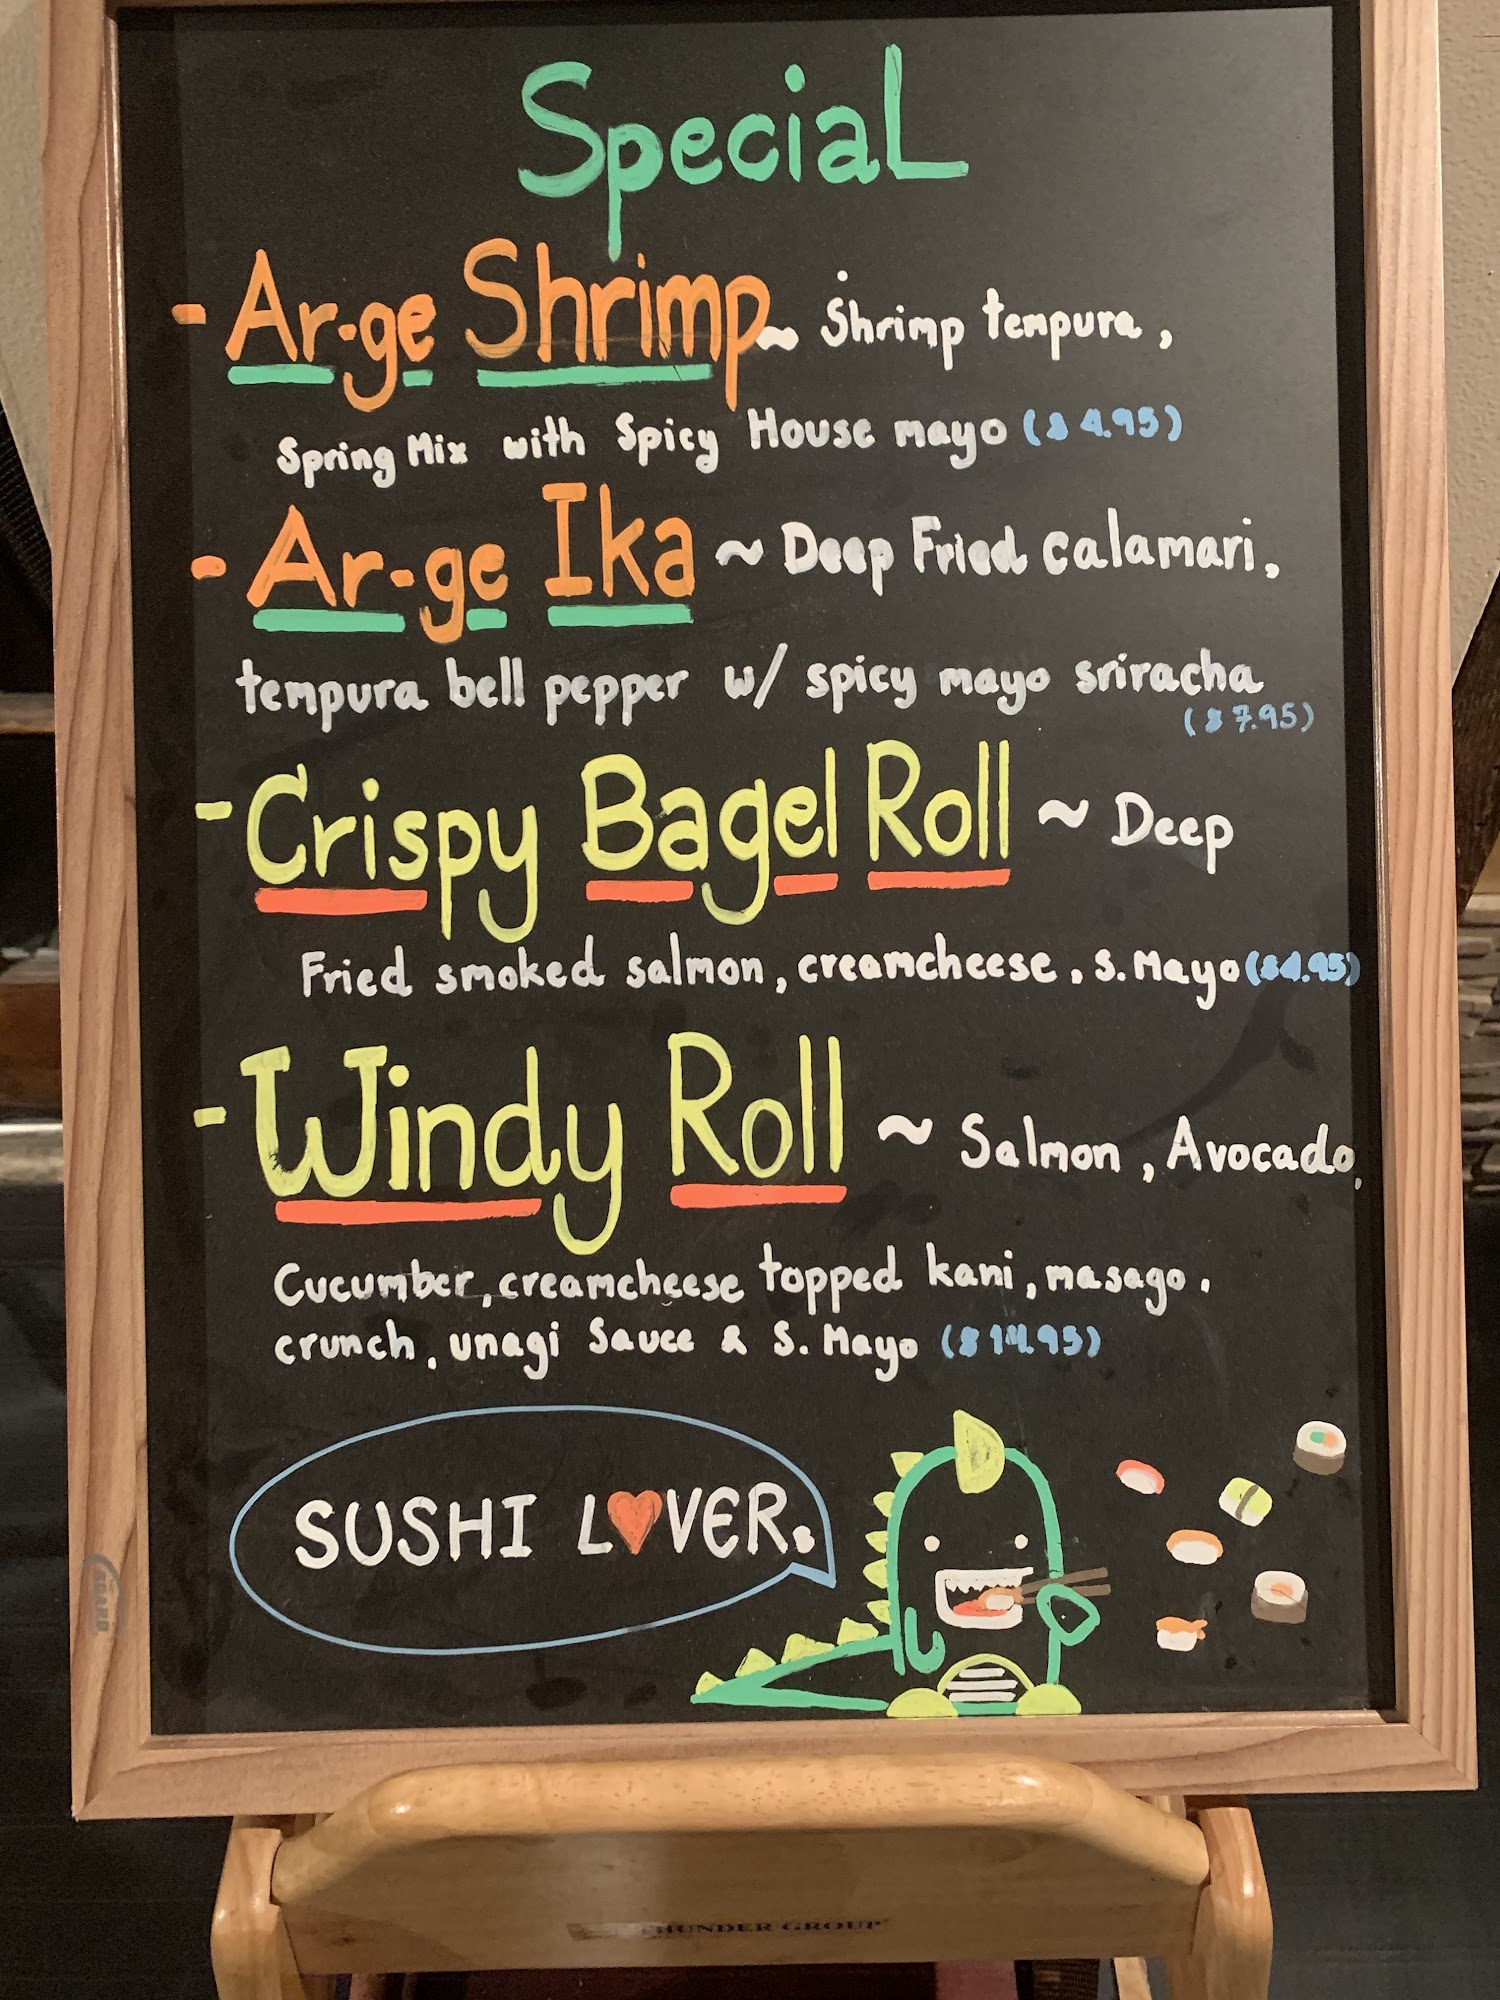 Special
- Ar-ge Shrimp ~ Shrimp tempura,
Spring Mix with Spicy House mayo ($4.95)
- Ar-ge Ika ~ Deep Fried calamari,
tempura bell pepper w/ spicy mayo sriracha
($7.95)
- Crispy Bagel Roll ~ Deep
Fried smoked salmon, creamcheese, S. Mayo ($4.95)
- Windy Roll ~ Salmon, Avocado,
Cucumber, creamcheese topped kani, masago.
crunch, unagi Sauce & S. Mayo ($14.95)
SUSHI L♥VER.
THUNDER GROUP